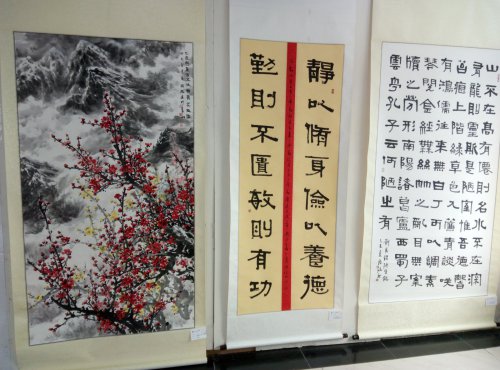 靜以脩身儉以養德
勤則不匱敏則有功
山不在高有僊則名水不在深
有龍則靈斯是陋室惟吾德馨
苔痕上階綠草色入簾青談笑
有鴻儒往來無白丁可以調素
琴閱金經無絲竹之亂耳無案
牘之勞形南陽諸葛廬西蜀子
雲亭孔子云何陋之有